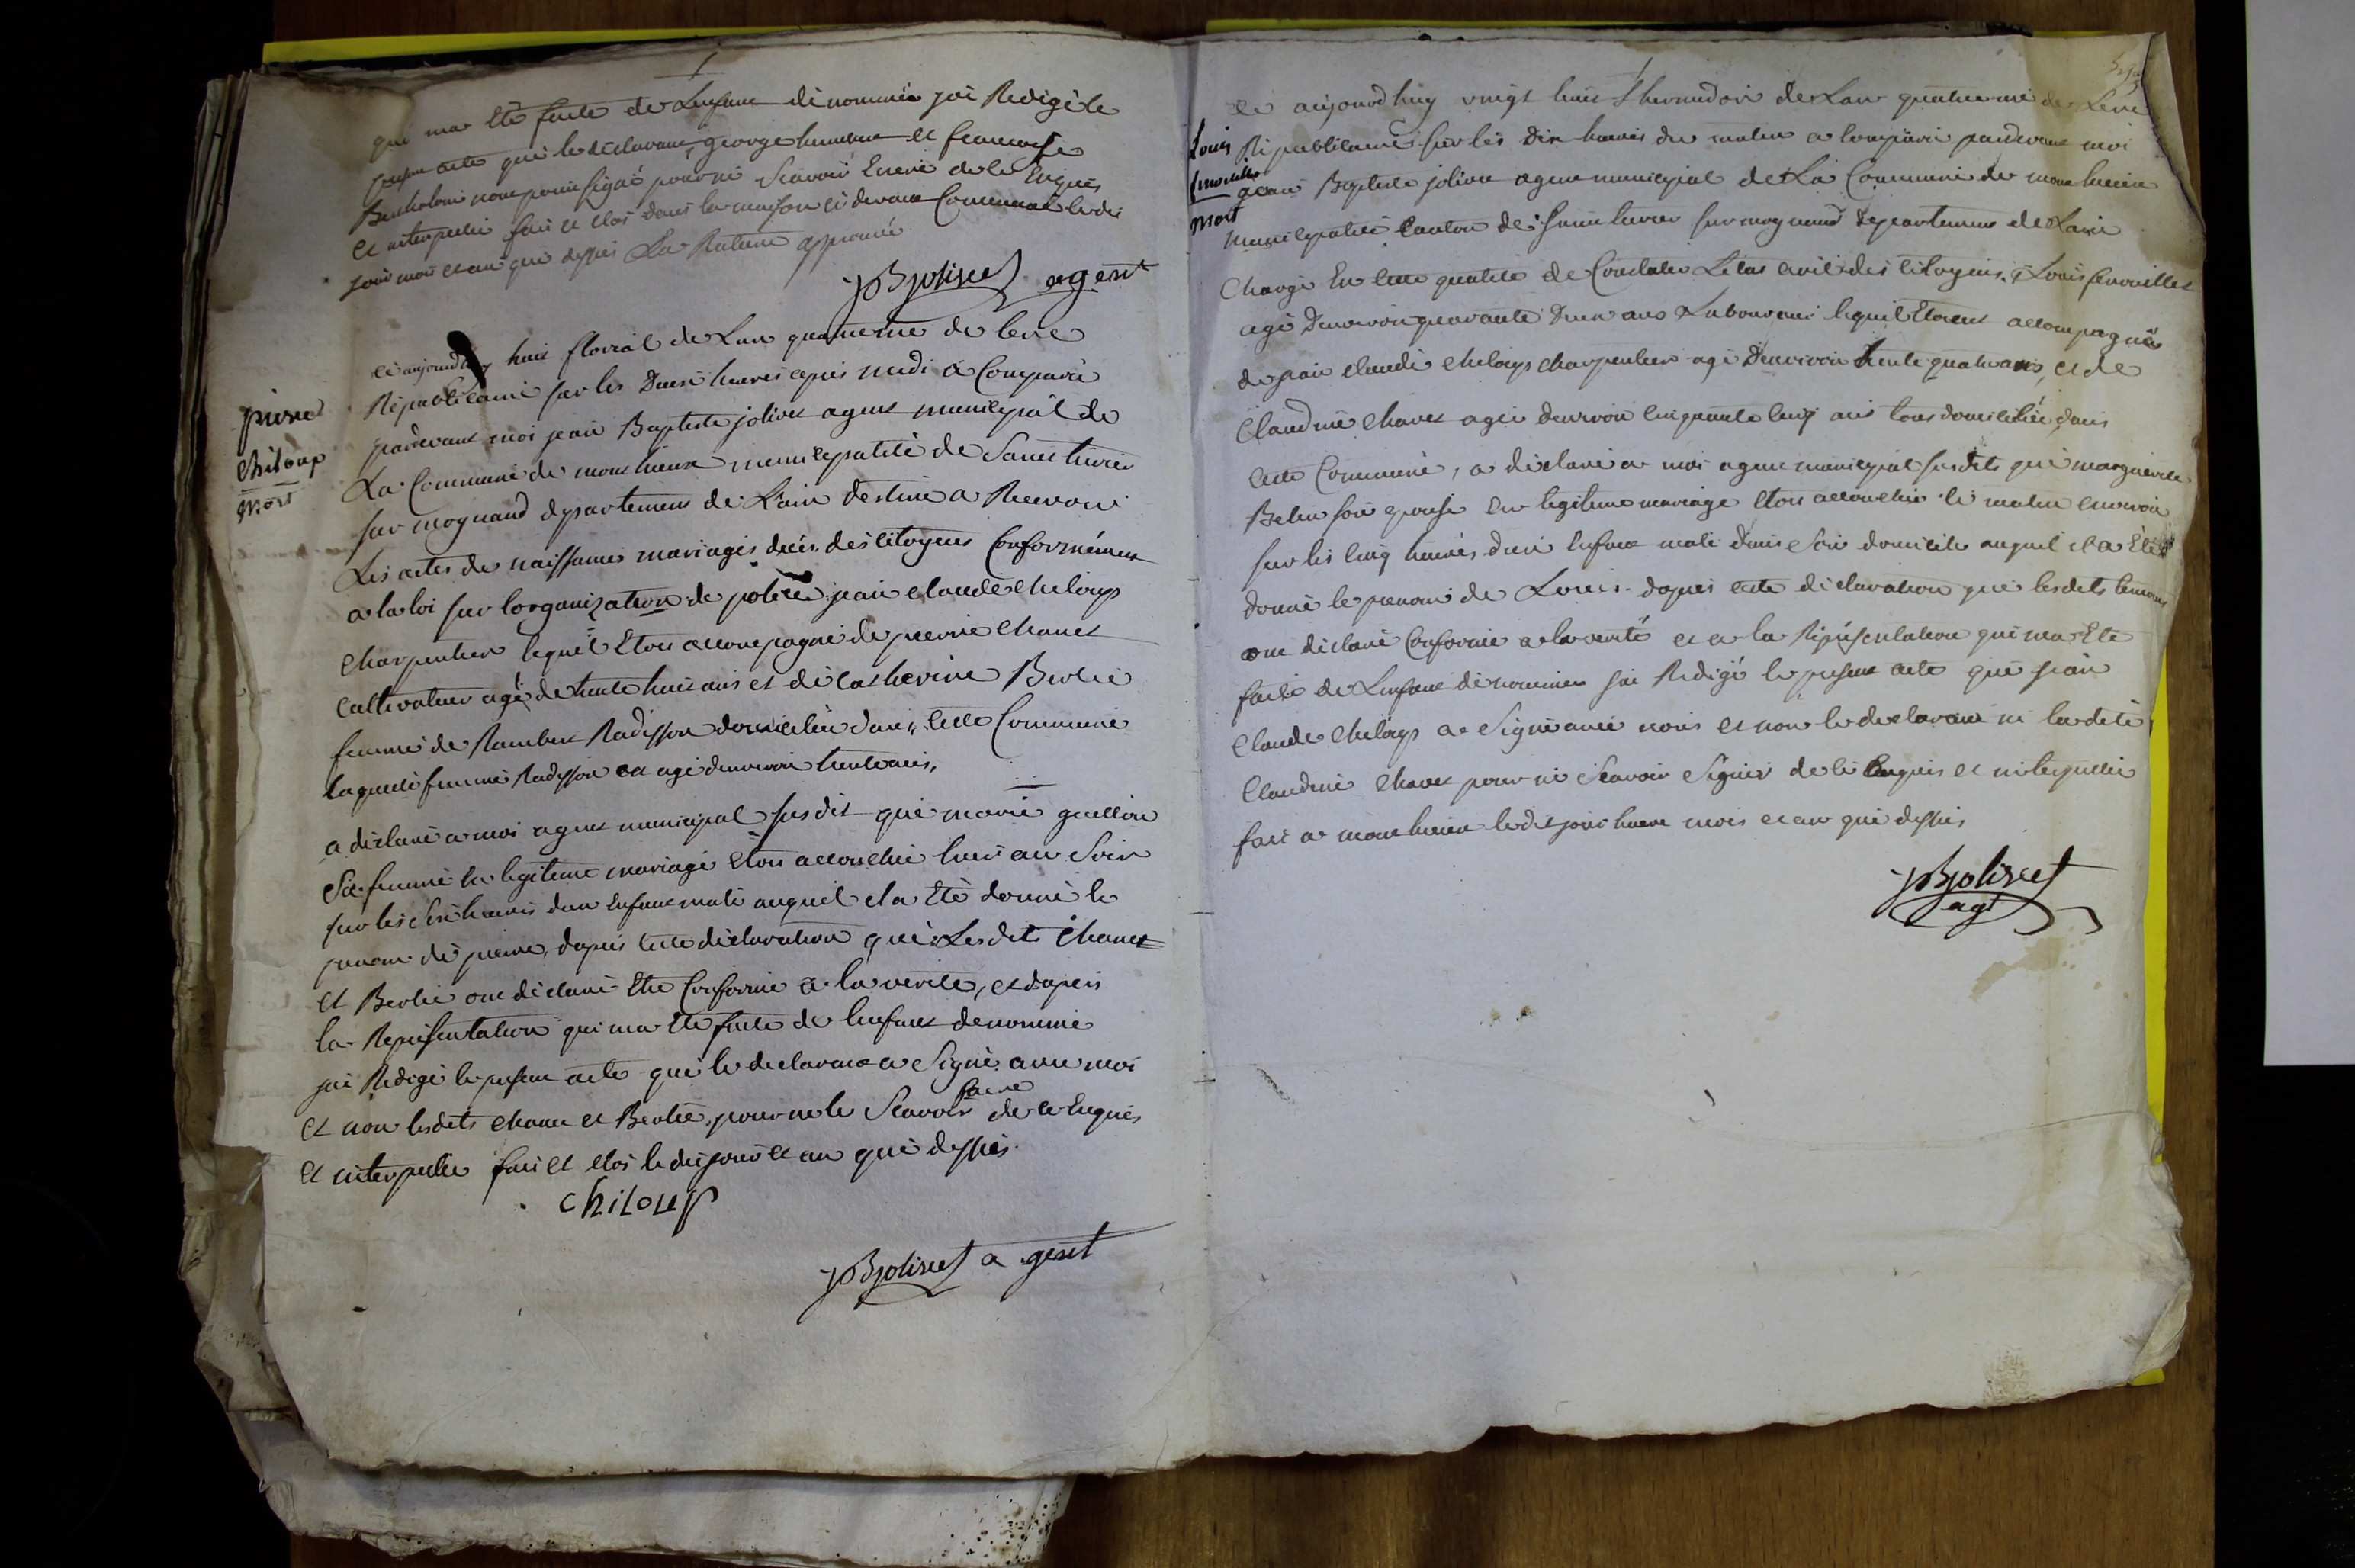 qui ma été faite de Lenfant dénommée jai Redigé le
present acte que le déclarant, george humbert et francoise
Bartholome nont point signé pour ne Scavoir Ecrire de ce Enquis
et interpellé fait et clos dans la maison ci devant Communal ledit
jour mois et an que dessus La Rature approuvé
JBjolivet agent
pierre
chiloup
mort
ce aujourdhuy huit floréal de Lan quatrieme de lere
Républicaine sur les Deux heures apres midi a Comparu
pardevant moi jean Baptiste jolivet agent municipal de
La Commune de monthieux municipalité de Saint trivier
sur mognand departement de Lain destine a Recevoir
Les actes de naissances mariages décès des citoyens Conformément
a la loi sur lorganization de police jean claude cheloup
charpentier lequel Etoit accompagné de pierre Chanet
cultivateur agé de trente huit ans et de catherine Berlie
femme de Rambert Radisson domiciliée dans cette Commune
laquelle femme Radisson est agé denviron trente ans,
a déclaré a moi agent municipal susdit que marie
Sa femme en legitime mariage Etoit accouchée hier au Soir
sur les Six heures dun Enfant male auquel il a Eté donné le
prenom de pierre, dapres cette déclaration que Lesdits Chanet
et Berlie ont déclaré Etre Conforme a la verité, et dapres
la Representation qui ma Eté faite de lenfant denommé
jai Redigé le present acte que le declarant a Signé avec moi
et non lesdits chanet et Berlie, pour ne le Scavoir faire de ce Enquis
et interpellé fait et clos le dit jour et an que dessus.
chiloup
JBjolivet agent
Louis
fenouillet
mort
ce aujourdhuy vingt huit thermidor de Lan quatrieme de Lere
Républicaine sur les Dix heures du matin a Comparu pardevant moi
jean Baptiste jolivet agent municipal de La Commune de monthieux
municipalité Canton de Saint trivier sur mognand departement de Lain
Chargé En cette qualité de Constater Létat civil des citoyens, Louis fenouillet
agé Denviron quarante Deux ans Laboureur lequel Etoient accompagné
de jean claude cheloup charpentier agé Denviron trente quatre ans, et de
Claudine Chanet agée denviron cinquante cinq ans tous domiciliés dans
cette Commune, a déclaré a moi agent municipal susdits que marguerite
Belin son epouse En legitime mariage Etoit accouchée ce matin environ
sur les cinq heures dun Enfant male dans Son domicile auquel il a Eté
donné le prenom de Louis. dapres cette déclaration que lesdits temoins
ont déclaré Conforme a la verité et a la Répresentation qui ma Eté
faite de Lenfant dénommé jai Redigé le present acte que jean
Claude cheloup a Signé avec nous et non le declarant ni ladite
Claudine Chanet pour ne Scavoir Signer de ce Enquis et interpellé
fait a monthieux ledit jour heure mois et an que dessus
JBjolivet
agt